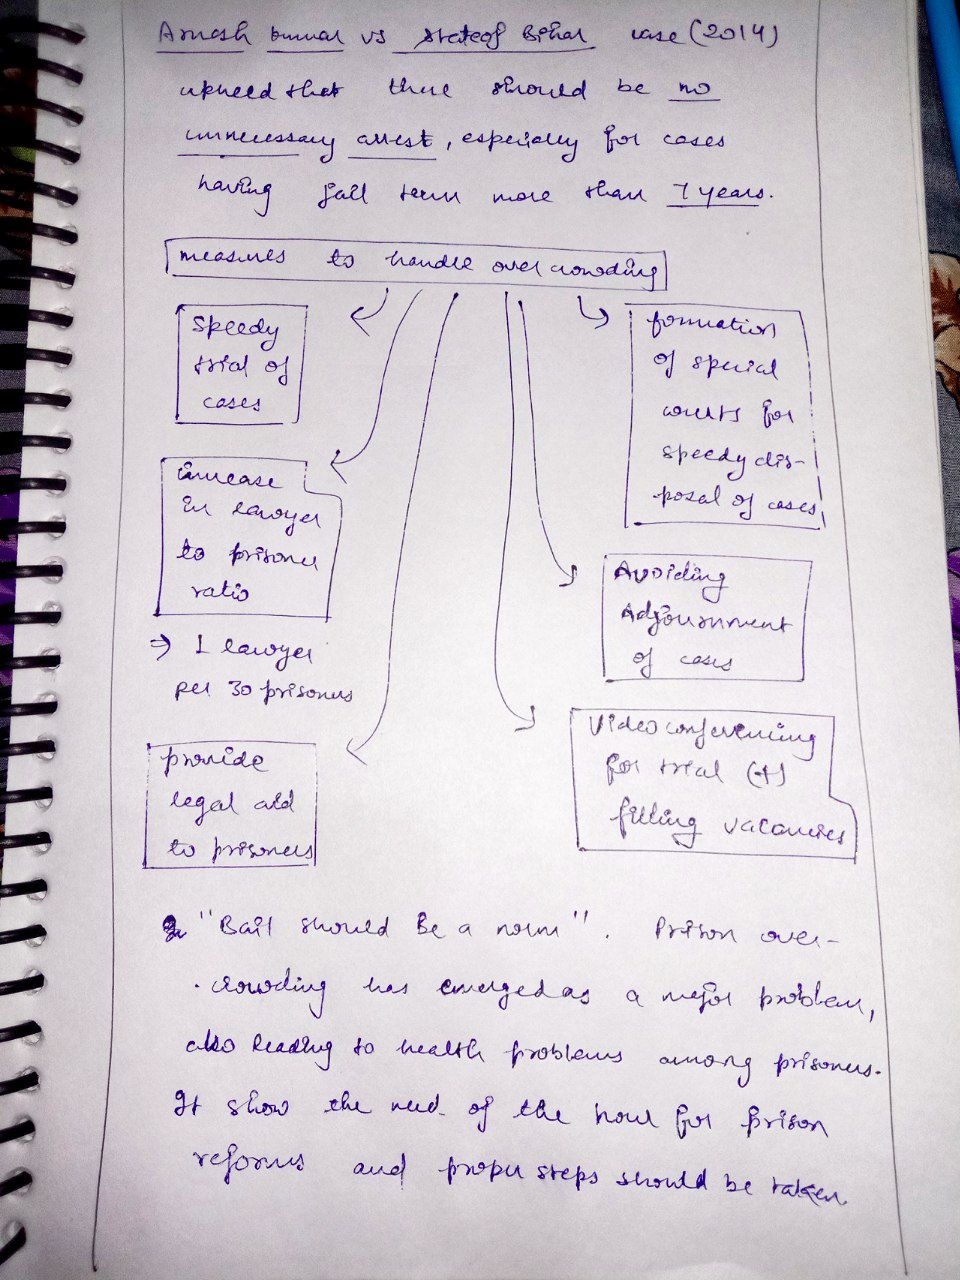 Arnesh kumar vs state of Bihar case (2014)
upheed that there should be no
unnecessary arrest, especially for cases
having jail term more than 7 years.
measures to handle over crowding
speedy
trial of
cases
formation
of special
courts for
speedy dis-
posal of cases
increase
in lawyer
to prisoner
ratio
⇒ 1 lawyer
per 30 prisoners
Avoiding
Adjournment
of cases
provide
legal aid
to prisoners
Video conferencing
for trial (+)
filling vacancies
"Bail should be a norm". Prison over-
crowding has emerged as a major problem,
also leading to health problems among prisoners.
It show the need of the hour for prison
reforms and proper steps should be taken